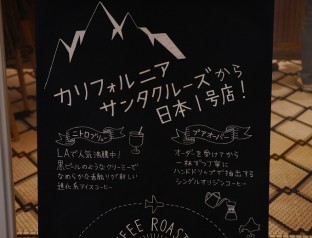 カリフォルニア
サンタクルーズから
日本1号店!
ニトロブリュー
LAで人気沸騰中!
黒ビールのようなクリーミーで
なめらかな舌触りが新しい
進化系アイスコーヒー
プアオーバー
オーダを受けてから
一杯ずつ丁寧に
ハンドドリップで抽出する
シングルオリジンコーヒー
COFFEE ROAST